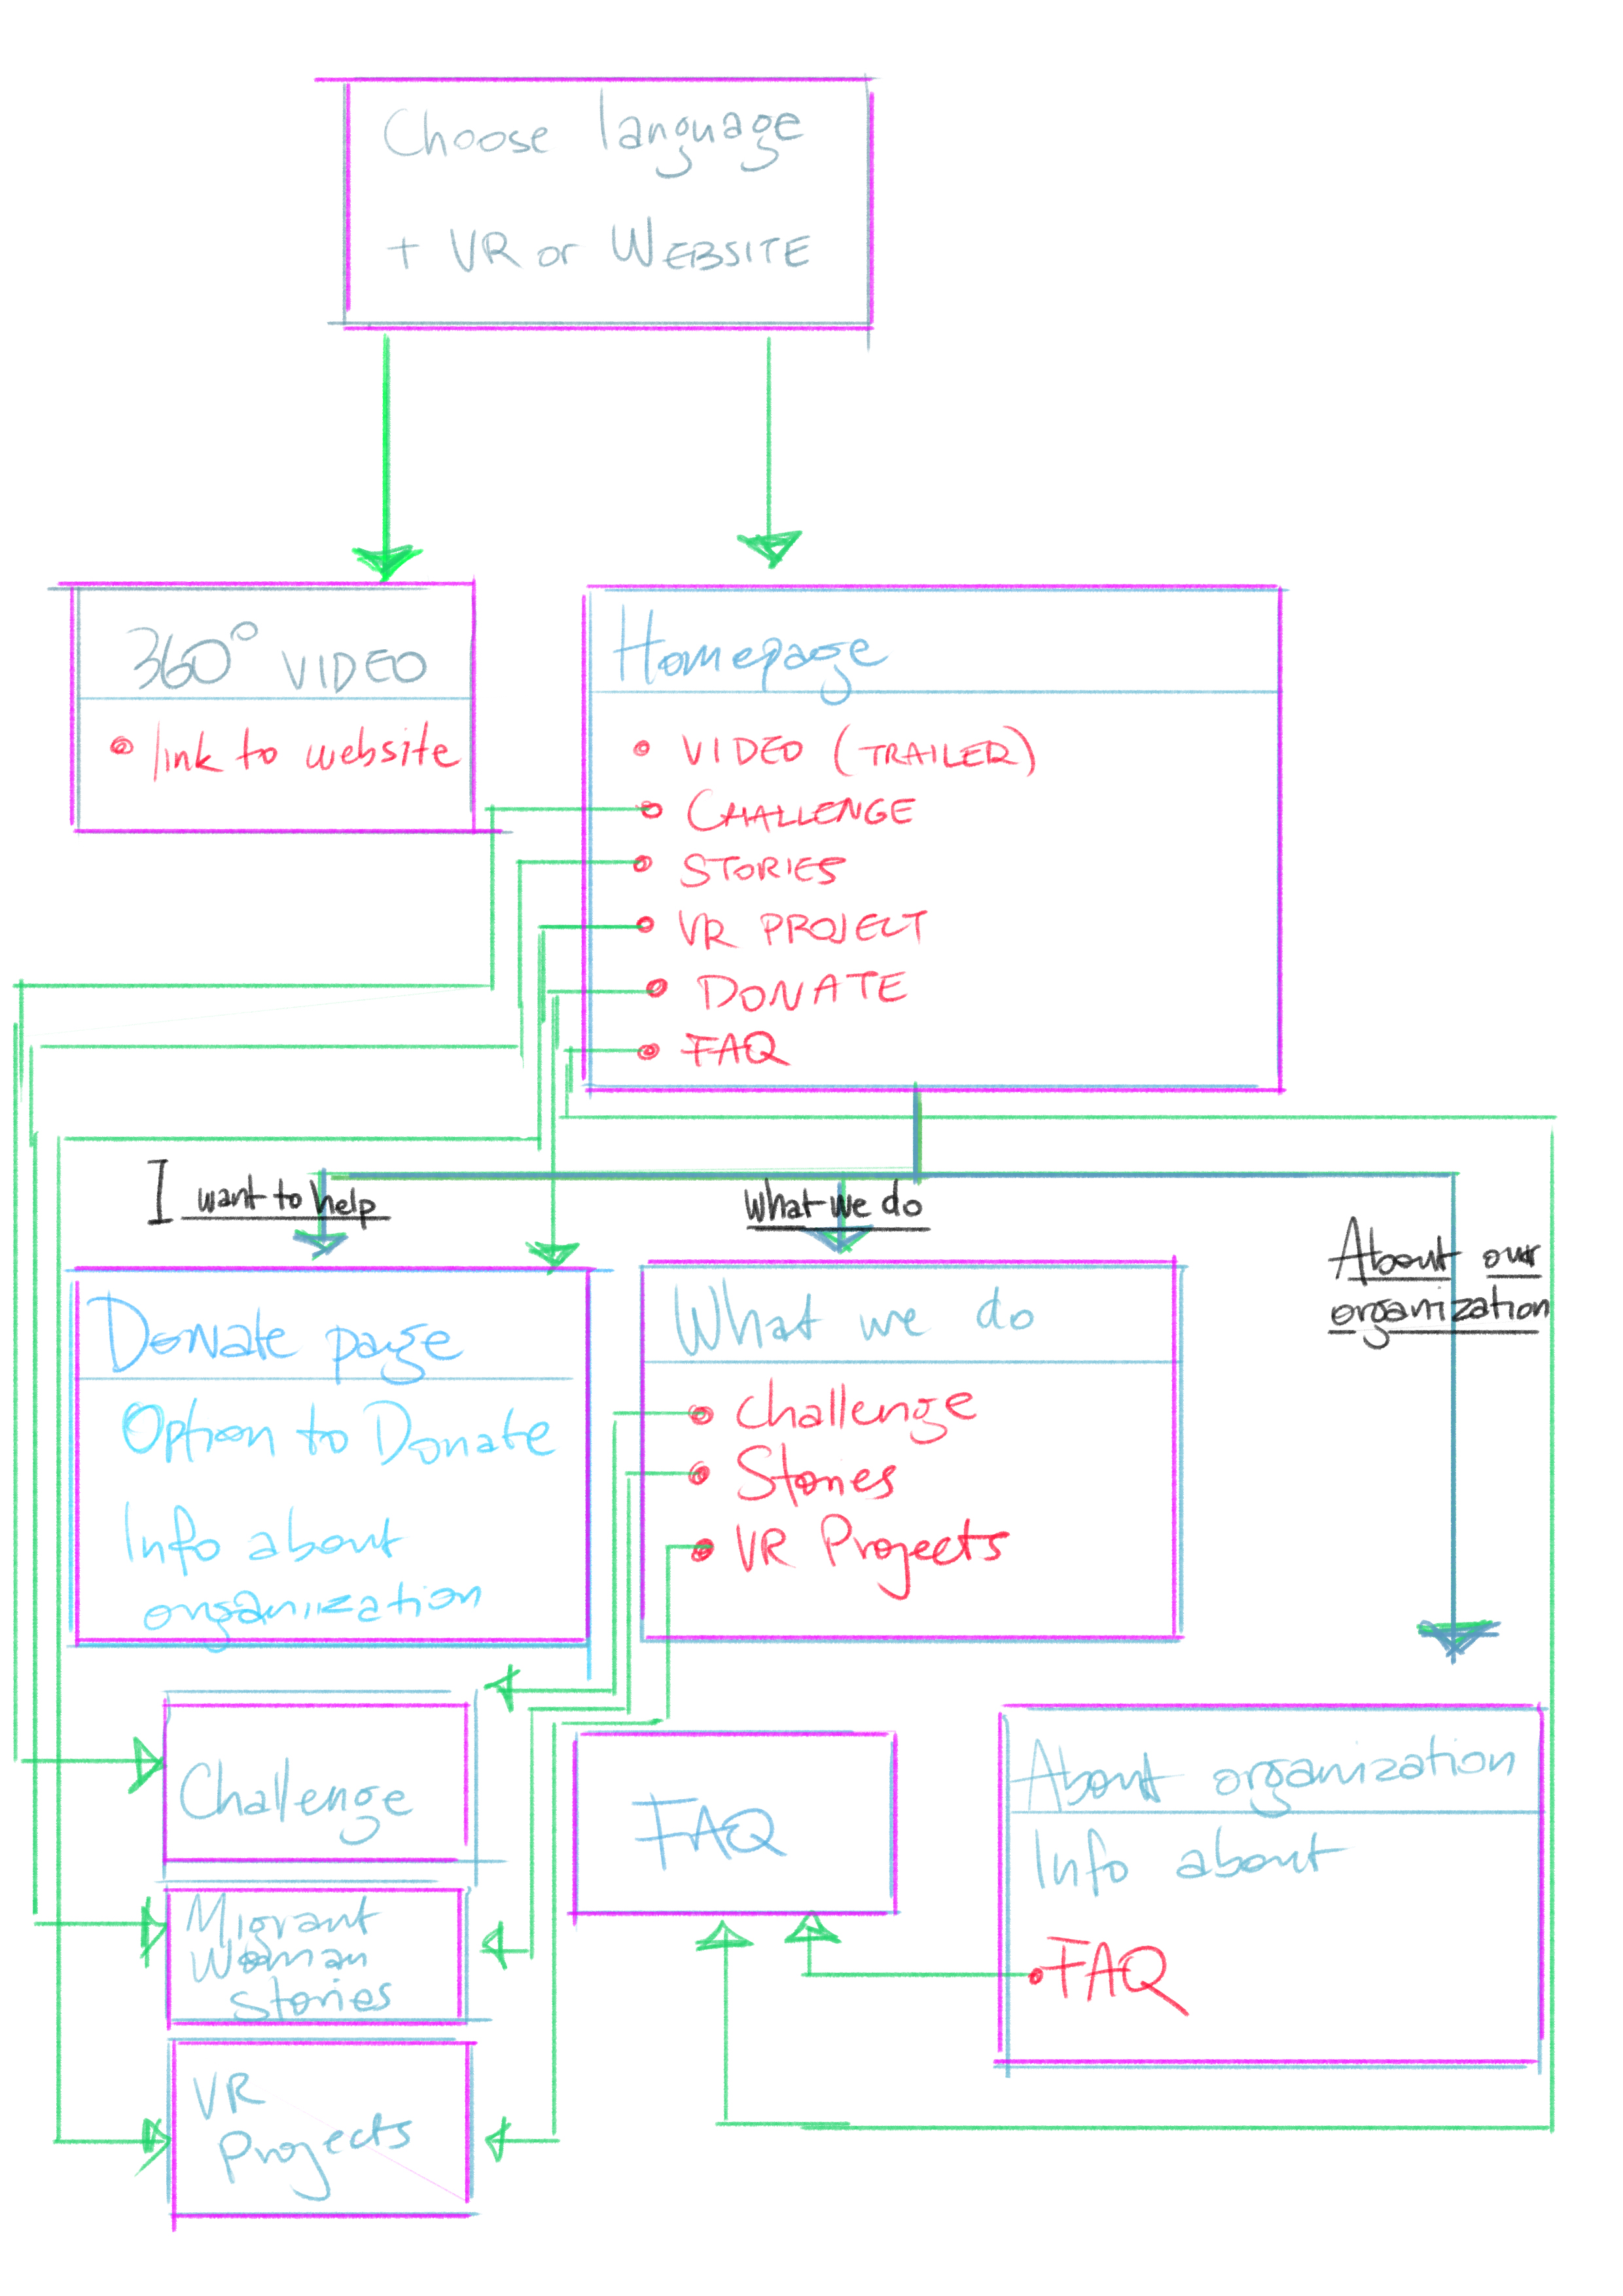 Choose language
+ VR or WEBSITE
360° VIDEO
link to website
Homepage
VIDEO (TRAILER)
CHALLENGE
STORIES
VR PROJECT
DONATE
FAQ
I want to help
What we do
About our
organization
Donate page
Option to Donate
Info about
organiization
What we do
Challenge
Stories
VR Projects
Challenge
Migrant
Woman
Stories
VR
Projects
FAQ
About organization
Info about
FAQ